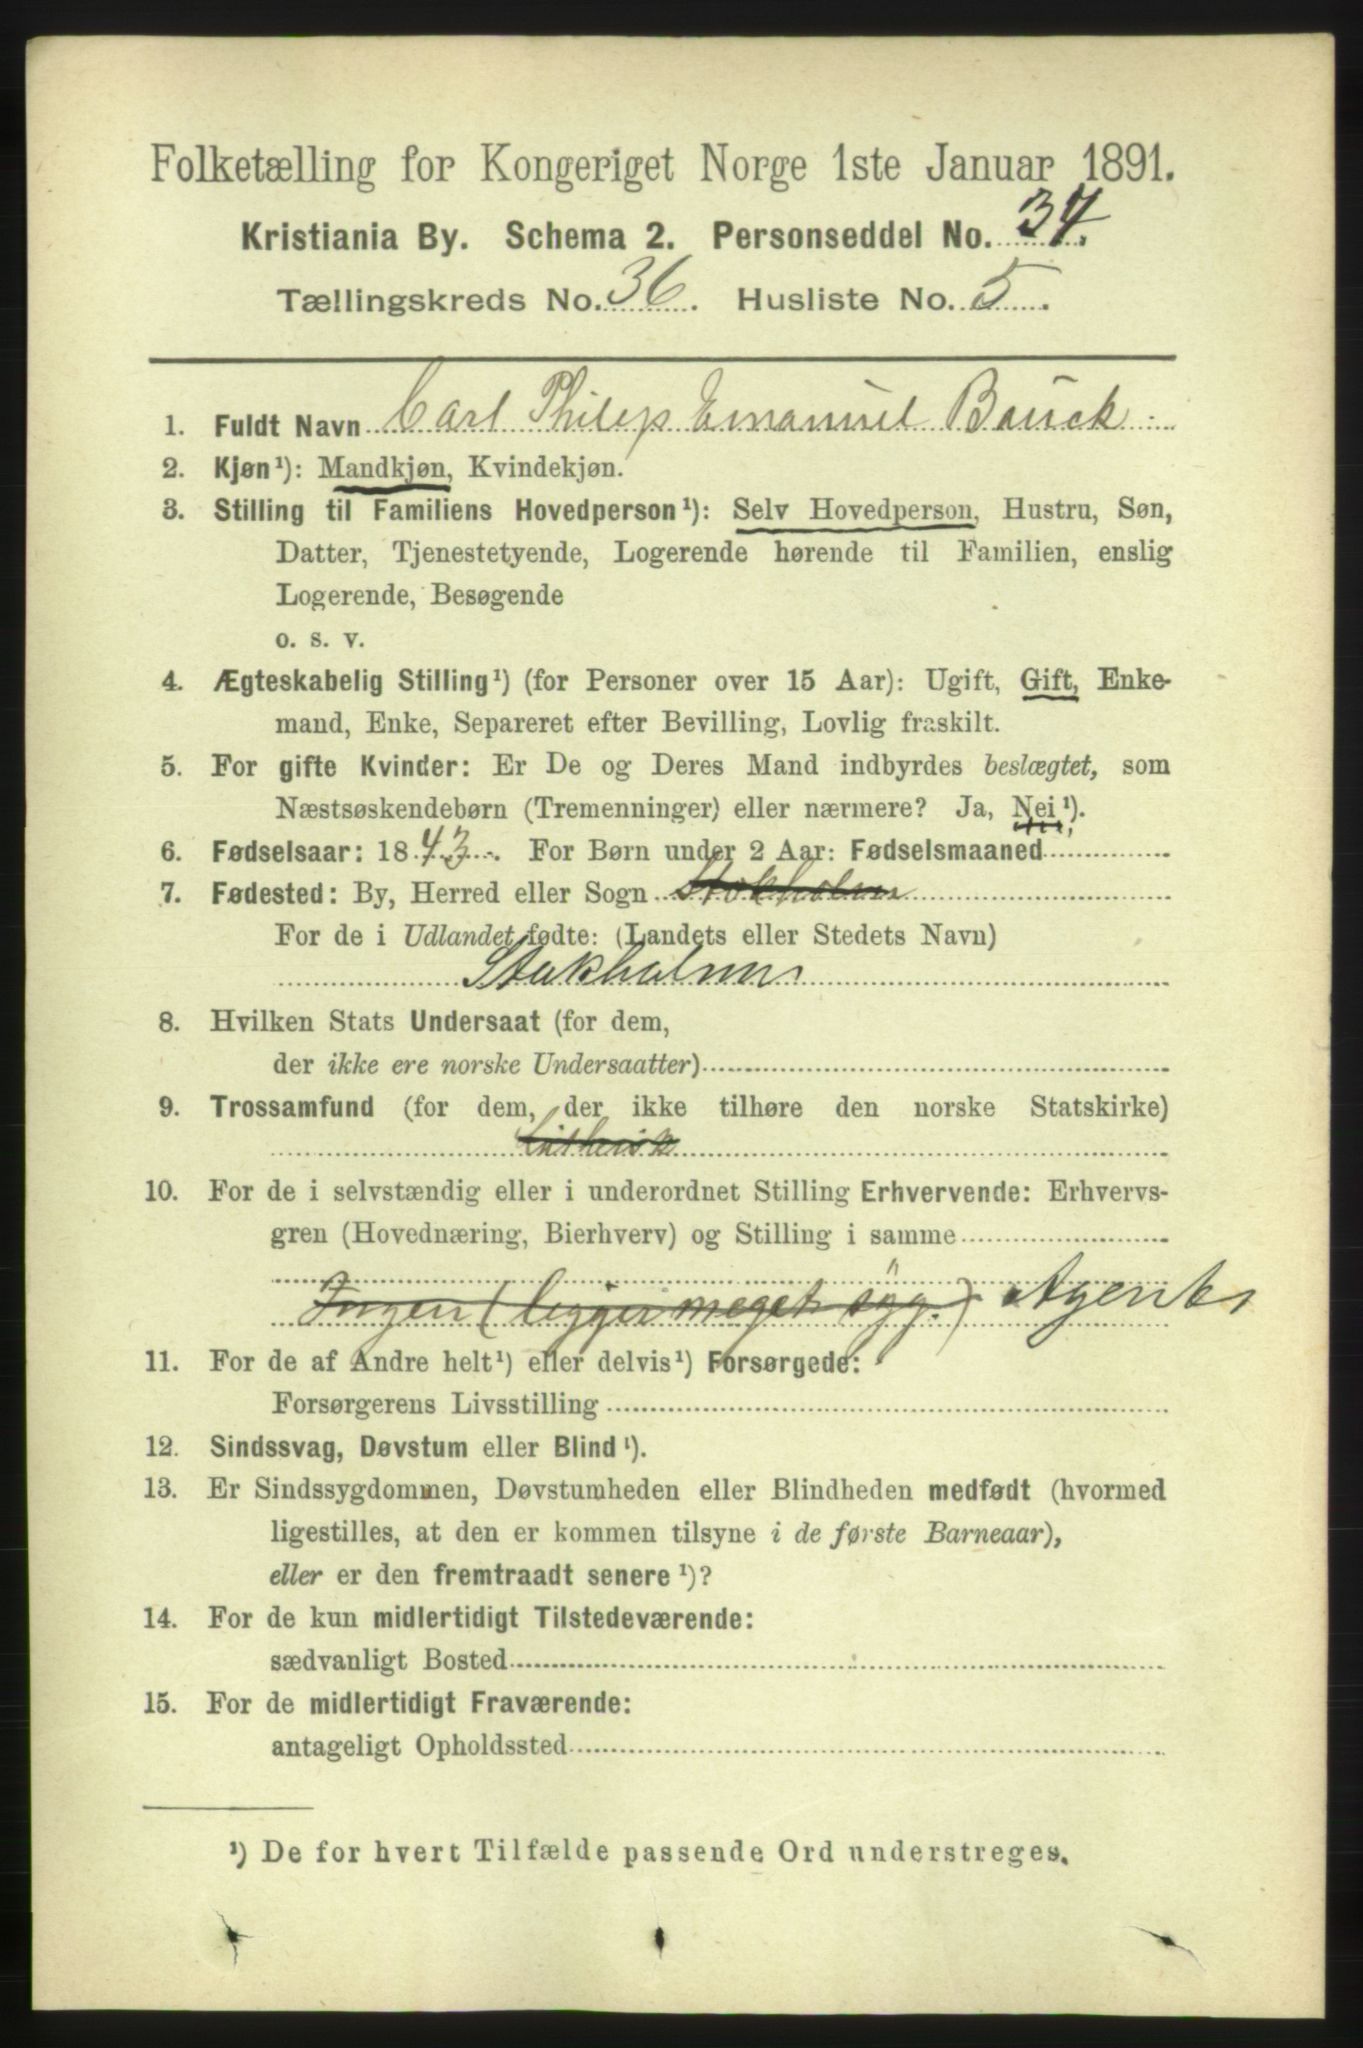 Folketælling for Kongeriget Norge 1ste Januar 1891.
Kristiania By. Schema 2. Personseddel No. 34.
Tællingskreds No. 36. Husliste No. 5.
1. Fuldt Navn Carl Philip Emanuel Bauck.
2. Kjøn¹): Mandkjøn, Kvindekjøn.
3. Stilling til Familiens Hovedperson¹): Selv Hovedperson, Hustru, Søn,
Datter, Tjenestetyende, Logerende hørende til Familien, enslig
Logerende, Besøgende
o. s. v.
4. Ægteskabelig Stilling¹) (for Personer over 15 Aar): Ugift, Gift, Enke-
mand, Enke, Separeret efter Bevilling, Lovlig fraskilt.
5. For gifte Kvinder: Er De og Deres Mand indbyrdes beslægtet, som
Næstsøskendebørn (Tremenninger) eller nærmere? Ja, Nei¹).
6. Fødselsaar: 1843. For Børn under 2 Aar: Fødselsmaaned
7. Fødested: By, Herred eller Sogn Stokholm
For de i Udlandet fødte: (Landets eller Stedets Navn)
Stokholm
8. Hvilken Stats Undersaat (for dem,
der ikke ere norske Undersaatter)
9. Trossamfund (for dem, der ikke tilhøre den norske Statskirke)
Luthersk
10. For de i selvstændig eller i underordnet Stilling Erhvervende: Erhvervs-
gren (Hovednæring, Bierhverv) og Stilling i samme
Ingen (ligger meget syg.) Agent
11. For de af Andre helt¹) eller delvis¹) Forsørgede:
Forsørgerens Livsstilling
12. Sindssvag, Døvstum eller Blind¹).
13. Er Sindssygdommen, Døvstumheden eller Blindheden medfødt (hvormed
ligestilles, at den er kommen tilsyne i de første Barneaar),
eller er den fremtraadt senere¹)?
14. For de kun midlertidigt Tilstedeværende:
sædvanligt Bosted
15. For de midlertidigt Fraværende:
antageligt Opholdssted
¹) De for hvert Tilfælde passende Ord understreges.